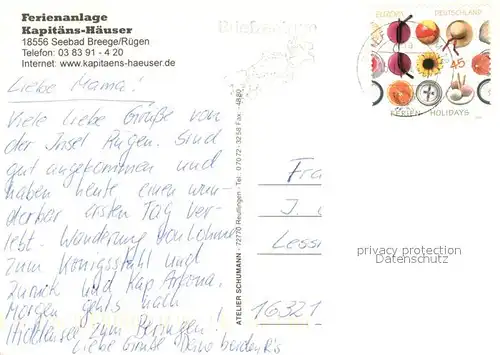 Ferienanlage
Kapitäns-Häuser
18556 Seebad Breege/Rügen
Telefon: 03 83 91 - 4 20
Internet: www.kapitaens-haeuser.de
Liebe Mama!
Viele liebe Grüße von
der Insel Rügen. Sind
gut angekommen und
haben heute einen wun-
derbar ersten Tag ver-
lebt. Wanderung von Lohme
zum Königsstuhl und
zurück und Kap Arkona.
Morgen gehts nach
Hiddensee zum
Liebe Grüße Deine beiden
ATELIER SCHUMANN - 72770 Reutlingen - Tel. 0 70 72 - 32 56 Fax - 48 80
Briefzentrum
EUROPA DEUTSCHLAND
45
FERIEN HOLIDAYS
Fra
J.
Lessi
16321
privacy protection
Datenschutz